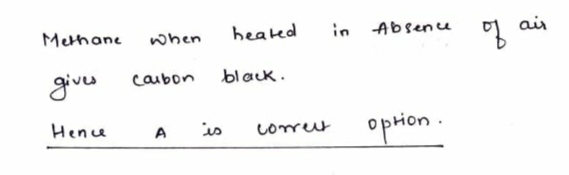 Methane when heated in Absence of air
gives carbon black.
Hence A is correct option.